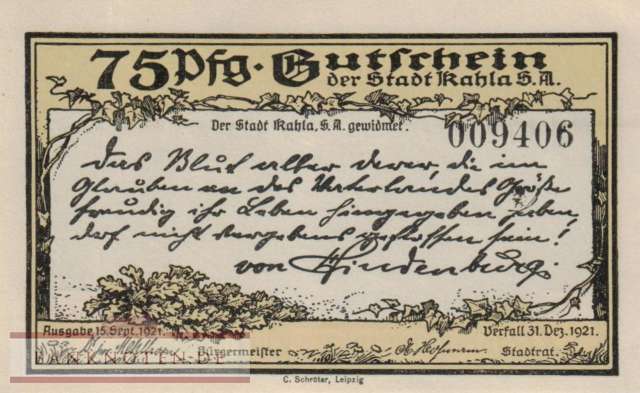 75 Pfg. Gutschein
der Stadt Kahla S.A.
Der Stadt Kahla, S.A. gewidmet.
009406
Das Blut aller derer, die im
Glauben an des Vaterlandes Größe
freudig ihr Leben hingegeben haben,
darf nicht vergebens geflossen sein!
von Hindenburg.
Ausgabe 15. Sept. 1921.
Verfall 31. Dez. 1921.
Bürgermeister
Stadtrat.
BANKNOTEN.DE
C. Schröter, Leipzig